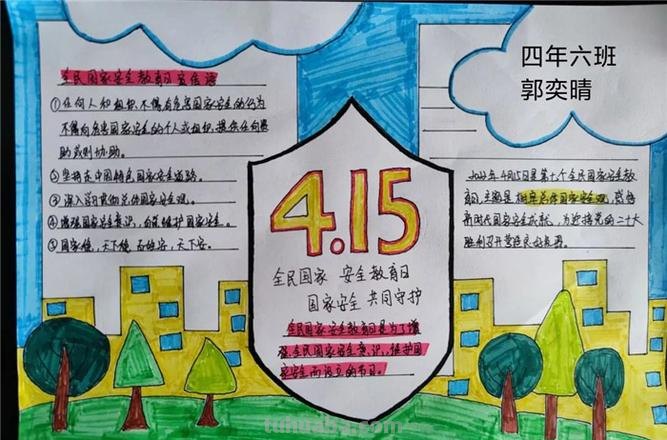 四年六班
郭奕晴
全民国家安全教育日宣传语
①任何人和组织不得有危害国家安全的行为
不得向危害国家安全的个人或组织提供任何资
助或则协助。
②坚持走中国特色国家安全道路。
③深入贯彻总体国家安全观。
④增强国家安全意识，自觉维护国家安全。
⑤国家强，天下强，天下安。
4.15
全民国家 安全教育日
国家安全 共同守护
全民国家安全教育日是为了增
强全民国家安全意识，维护国
家安全而设立的节日。
2022年4月15日是第七个全民国家安全教
育日，主题是树牢总体国家安全观，感悟
新时代国家安全成就，为迎接党的二十大
胜利召开营造良好氛围。
tuhuaba.com